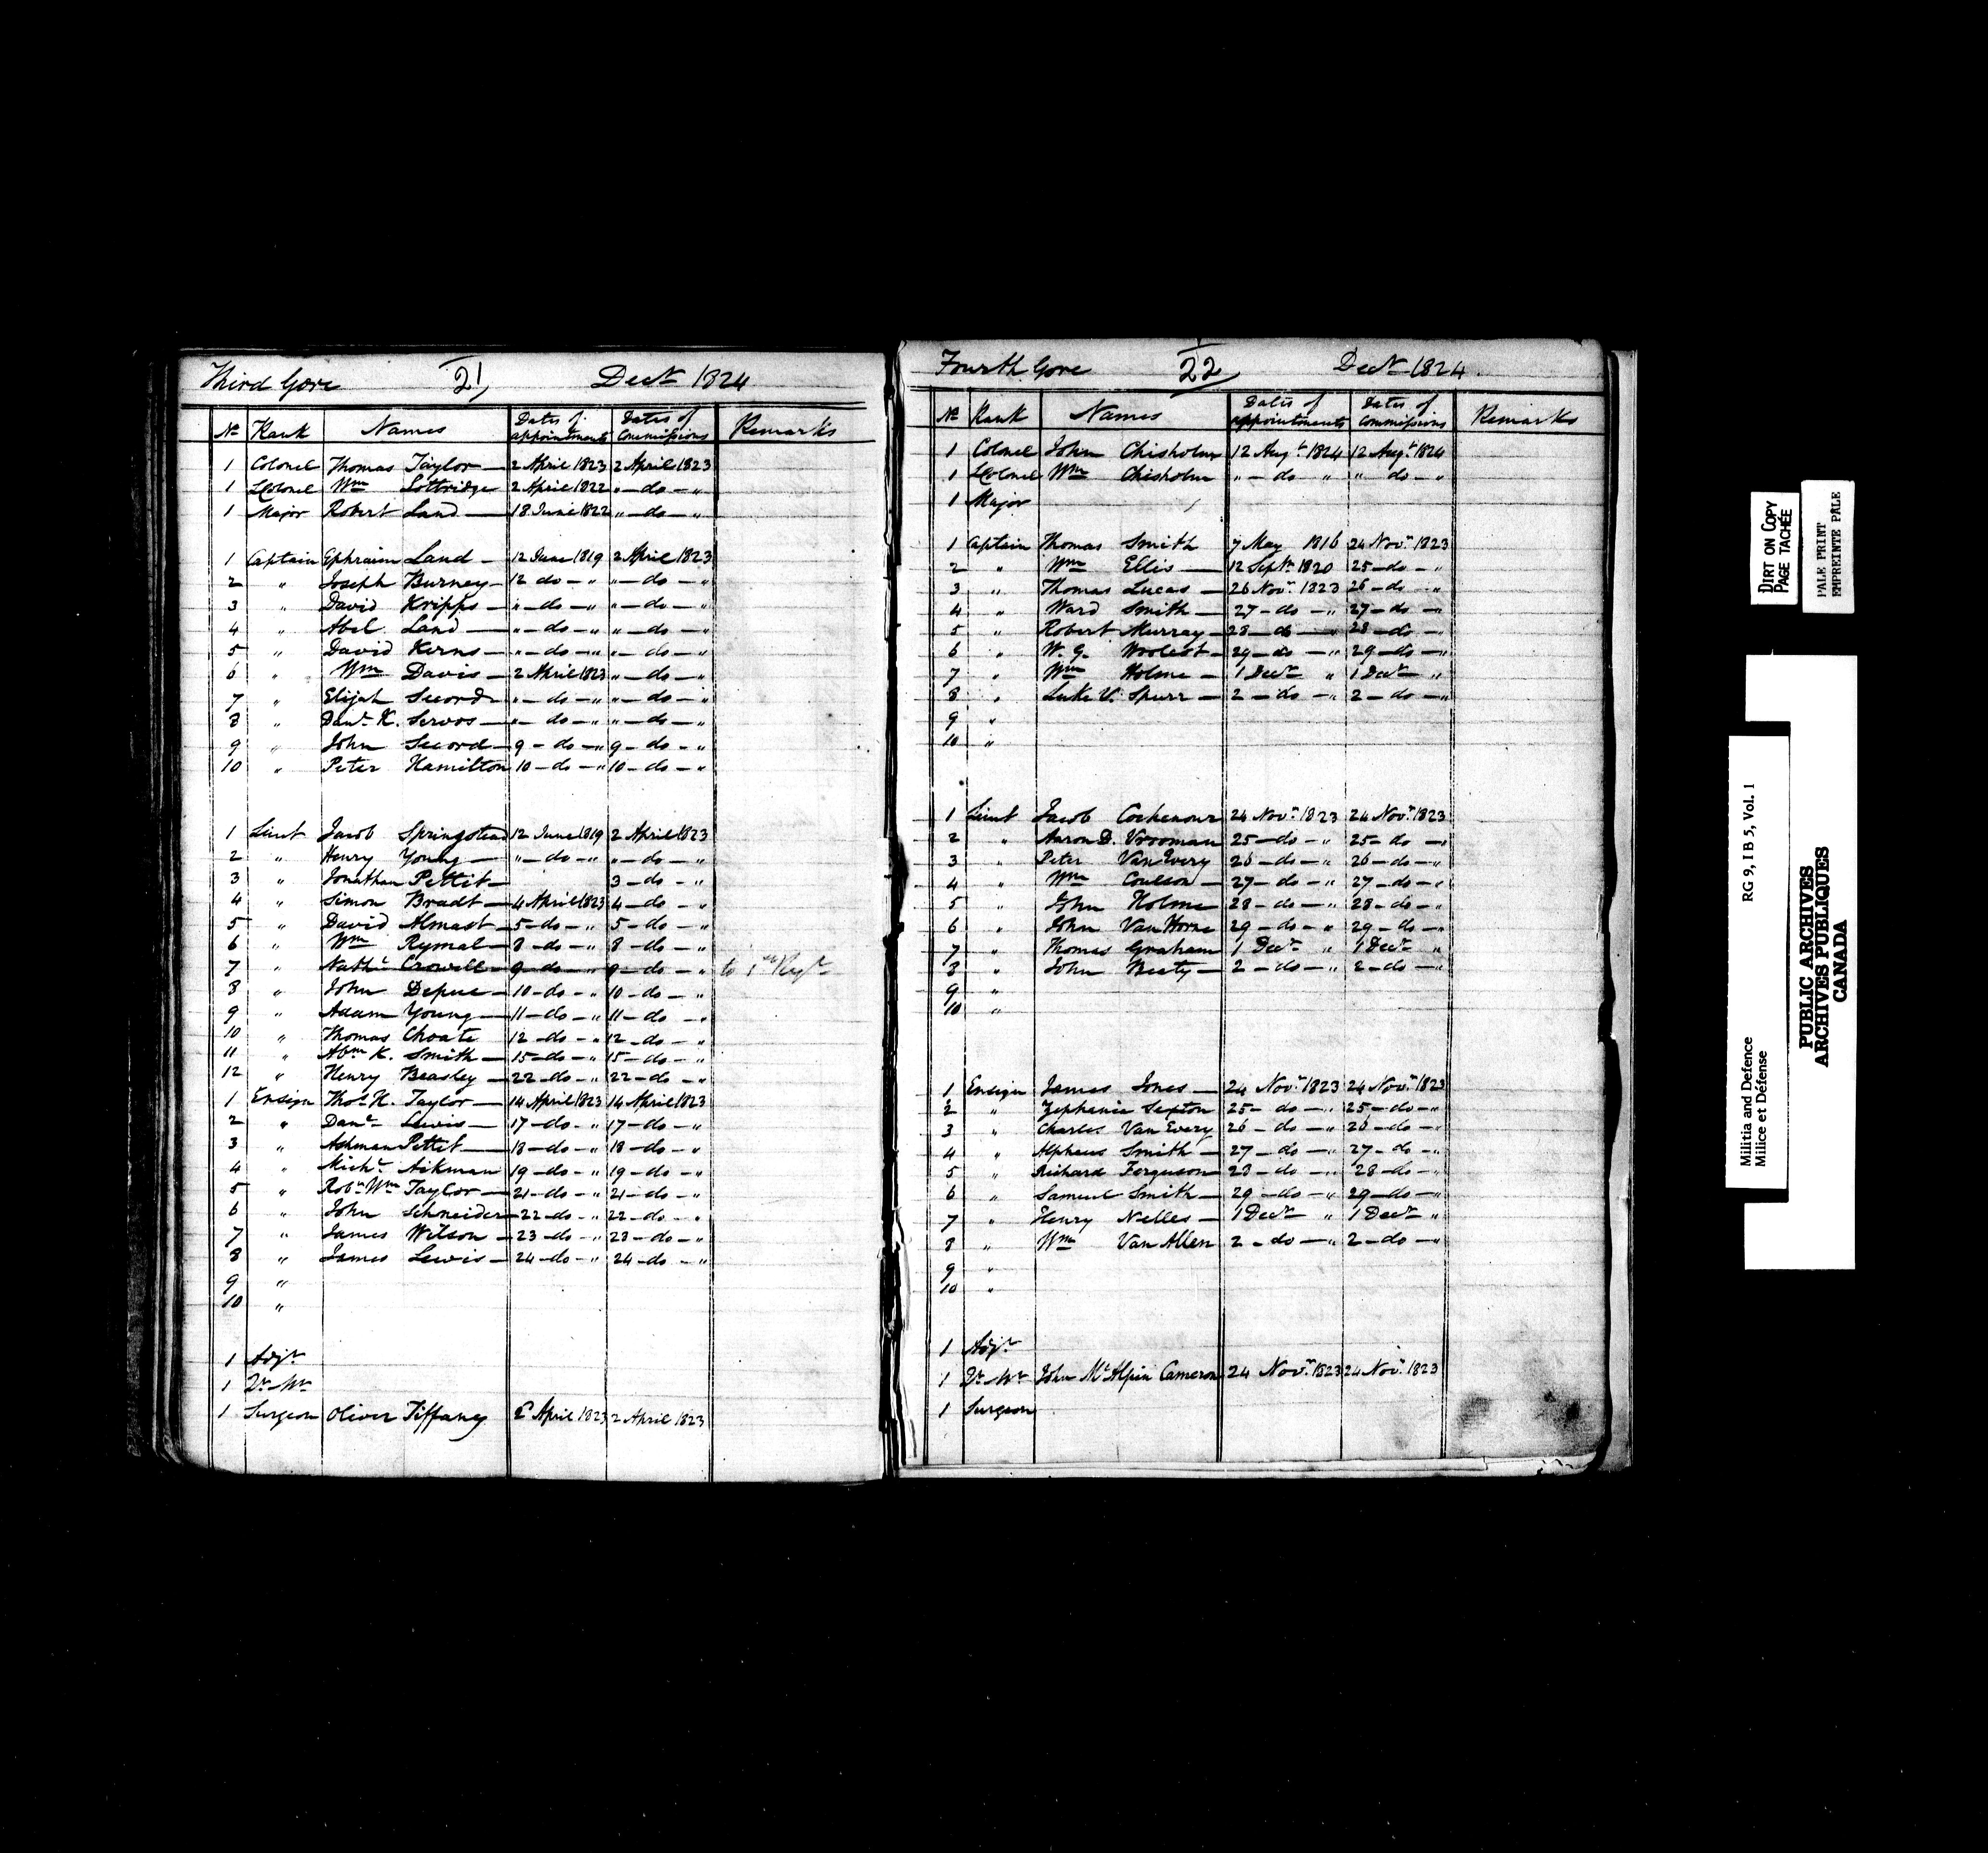 Third Gore 21 Decr 1824
No Rank Names Dates of appointments Dates of Commissions Remarks
1 Colonel Thomas Taylor — 2 April 1823 2 April 1823
1 LColonel Wm Lottridge 2 April 1822 " — do — "
1 Major Robert Land — 18 June 1822 " — do — "
1 Captain Ephraim Land — 12 June 1819 2 April 1823
2 " Joseph Burney — 12 do — " " — do — "
3 " David Kripps — " — do — " " — do — "
4 " Abel Land — " — do — " " — do — "
5 " David Kerns — " — do — " " — do — "
6 " Wm Davis — 2 April 1823 " — do — "
7 " Elijah Secord — " — do — " " — do — "
8 " Danl K. Servos — " — do — " " — do — "
9 " John Secord — 9 — do — " 9 — do — "
10 " Peter Hamilton 10 — do — " 10 — do — "
1 Lieut Jacob Springstead 12 June 1819 2 April 1823
2 " Henry Young — " — do — " " — do — "
3 " Jonathan Pettit — 3 — do — "
4 " Simon Bradt — 4 April 1823 4 — do — "
5 " David Almast — 5 — do — " 5 — do — "
6 " Wm Rymal — 8 — do — " 8 — do — "
7 " Nathl Crowell — 9 — do — " 9 — do — " to 1st Regt
8 " John Depue — 10 — do — " 10 — do — "
9 " Adam Young — 11 — do — " 11 — do — "
10 " Thomas Choate 12 — do — " 12 — do — "
11 " Abm K. Smith — 15 — do — " 15 — do — "
12 " Henry Beasley — 22 — do — " 22 — do — "
1 Ensign Thos H. Taylor — 14 April 1823 14 April 1823
2 " Danl Lewis — 17 — do — " 17 — do — "
3 " Ashman Pettit — 18 — do — " 18 — do — "
4 " Michl Aikman 19 — do — " 19 — do — "
5 " Robt Wm Taylor — 21 — do — " 21 — do — "
6 " John Schneider — 22 — do — " 22 — do — "
7 " James Wilson — 23 — do — " 23 — do — "
8 " James Lewis — 24 — do — " 24 — do — "
9 "
10 "
1 Adjt
1 Qr Mr
1 Surgeon Oliver Tiffany 2 April 1823 2 April 1823
Fourth Gore 22 Decr 1824
No Rank Names Dates of appointments Dates of Commissions Remarks
1 Colonel John Chisholm 12 Augt 1824 12 Augt 1824
1 LColonel Wm Chisholm " — do " " do — "
1 Major
1 Captain Thomas Smith 7 May 1816 24 Novr 1823
2 " Wm Ellis — 12 Septr 1820 25 — do — "
3 " Thomas Lucas — 26 Novr 1823 26 — do — "
4 " Ward Smith — 27 — do — " 27 — do — "
5 " Robert Murray — 28 — do — " 28 — do — "
6 " W. G. — 29 — do — " 29 — do — "
7 " Wm Holme — 1 Decr " 1 Decr "
8 " Luke V. Spurr — 2 — do — " 2 — do — "
9 "
10 "
1 Lieut Jacob Cochenour 24 Novr 1823 24 Novr 1823
2 " Aaron D. Vrooman 25 — do — " 25 — do — "
3 " Peter VanEvery 26 — do — " 26 — do — "
4 " Wm Coulson — 27 — do — " 27 — do — "
5 " John Holme — 28 — do — " 28 — do — "
6 " John Van Horne 29 — do — " 29 — do — "
7 " Thomas Graham 1 Decr " 1 Decr "
8 " John Beaty — 2 — do — " 2 — do — "
9 "
10 "
1 Ensign James Jones — 24 Novr 1823 24 Novr 1823
2 " Zephenia Sexton 25 — do — " 25 — do — "
3 " Charles Van Every 26 — do — " 26 — do — "
4 " Alpheus Smith — 27 — do — " 27 — do — "
5 " Richard Ferguson — 28 — do — " 28 — do — "
6 " Samuel Smith — 29 — do — " 29 — do — "
7 " Henry Nelles — 1 Decr " 1 Decr "
8 " Wm Van Allen 2 — do — " 2 — do — "
9 "
10 "
1 Adjt
1 Qr Mr John McAlpin Cameron 24 Novr 1823 24 Novr 1823
1 Surgeon
DIRT ON COPY
PAGE TACHÉE
PALE PRINT
EMPREINTE PALE
Militia and Defence RG 9, I B 5, Vol. 1
Milice et Défense
PUBLIC ARCHIVES
ARCHIVES PUBLIQUES
CANADA